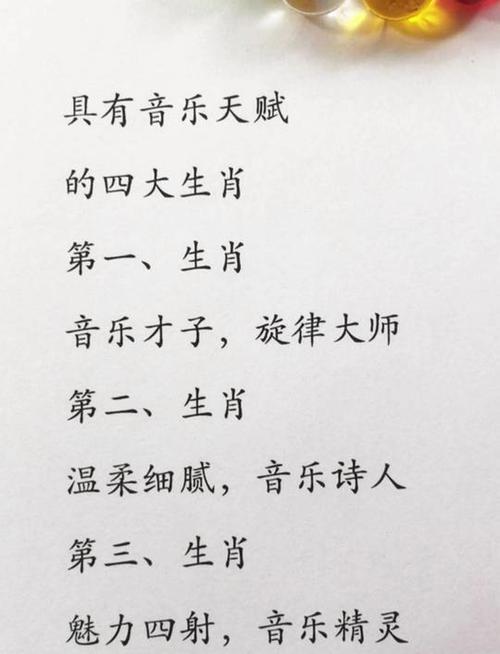 具有音乐天赋
的四大生肖
第一、生肖
音乐才子，旋律大师
第二、生肖
温柔细腻，音乐诗人
第三、生肖
魅力四射，音乐精灵